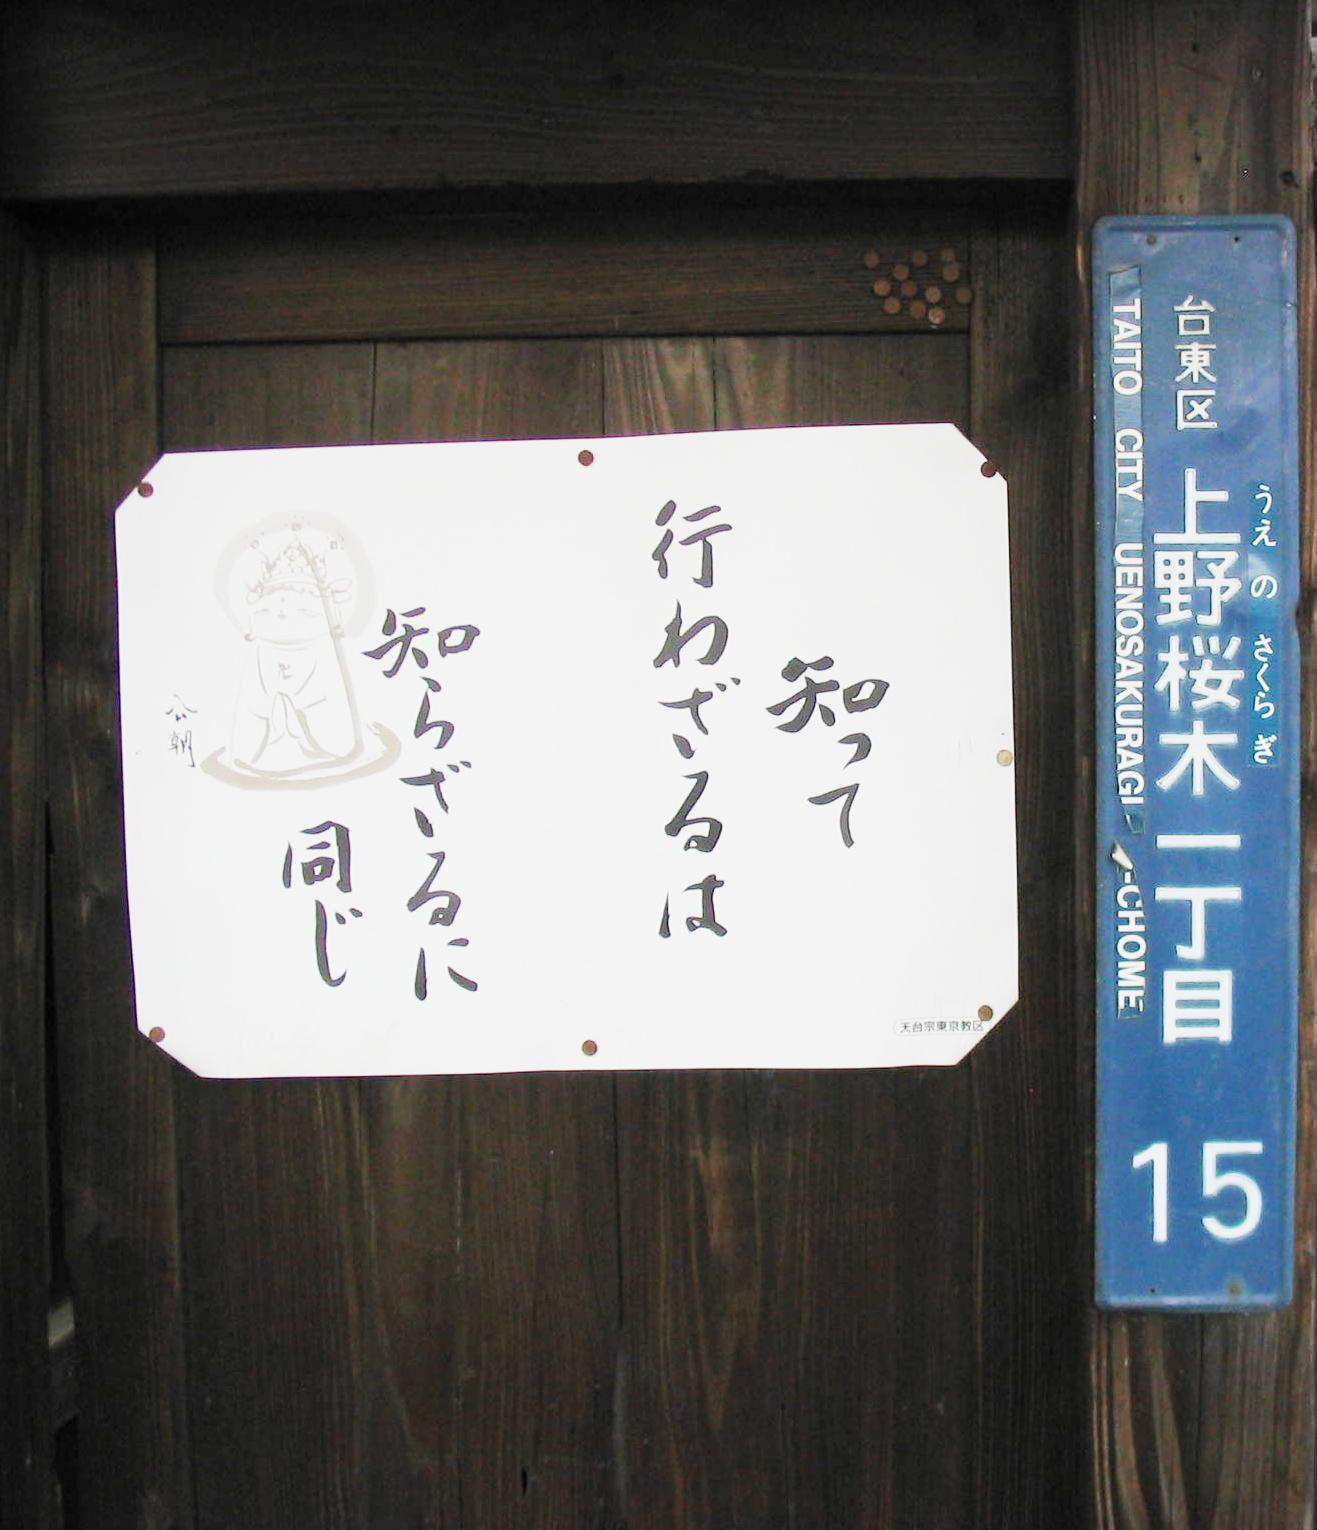 知って
行わざるは
知らざるに
同じ
公朝
天台宗東京教区
台東区 上野桜木一丁目 15
うえ の さくら ぎ
TAITO CITY UENOSAKURAGI -CHOME